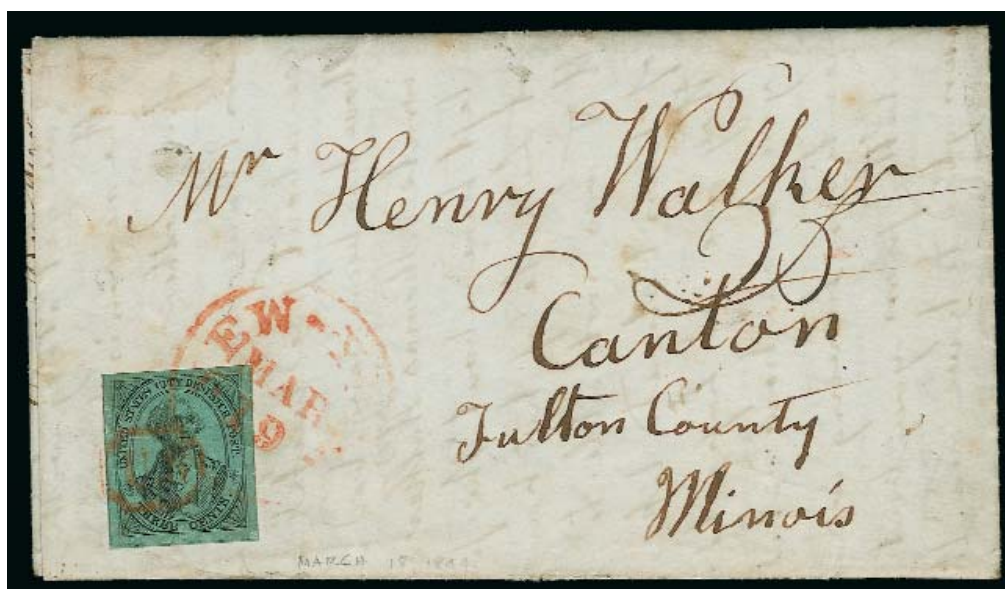 Mr Henry Walker
25
Canton
Fulton County
Illinois
EW-Y
MAR
19
UNITED STATES CITY DESPATCH POST.
THREE CENTS.
MARCH 18